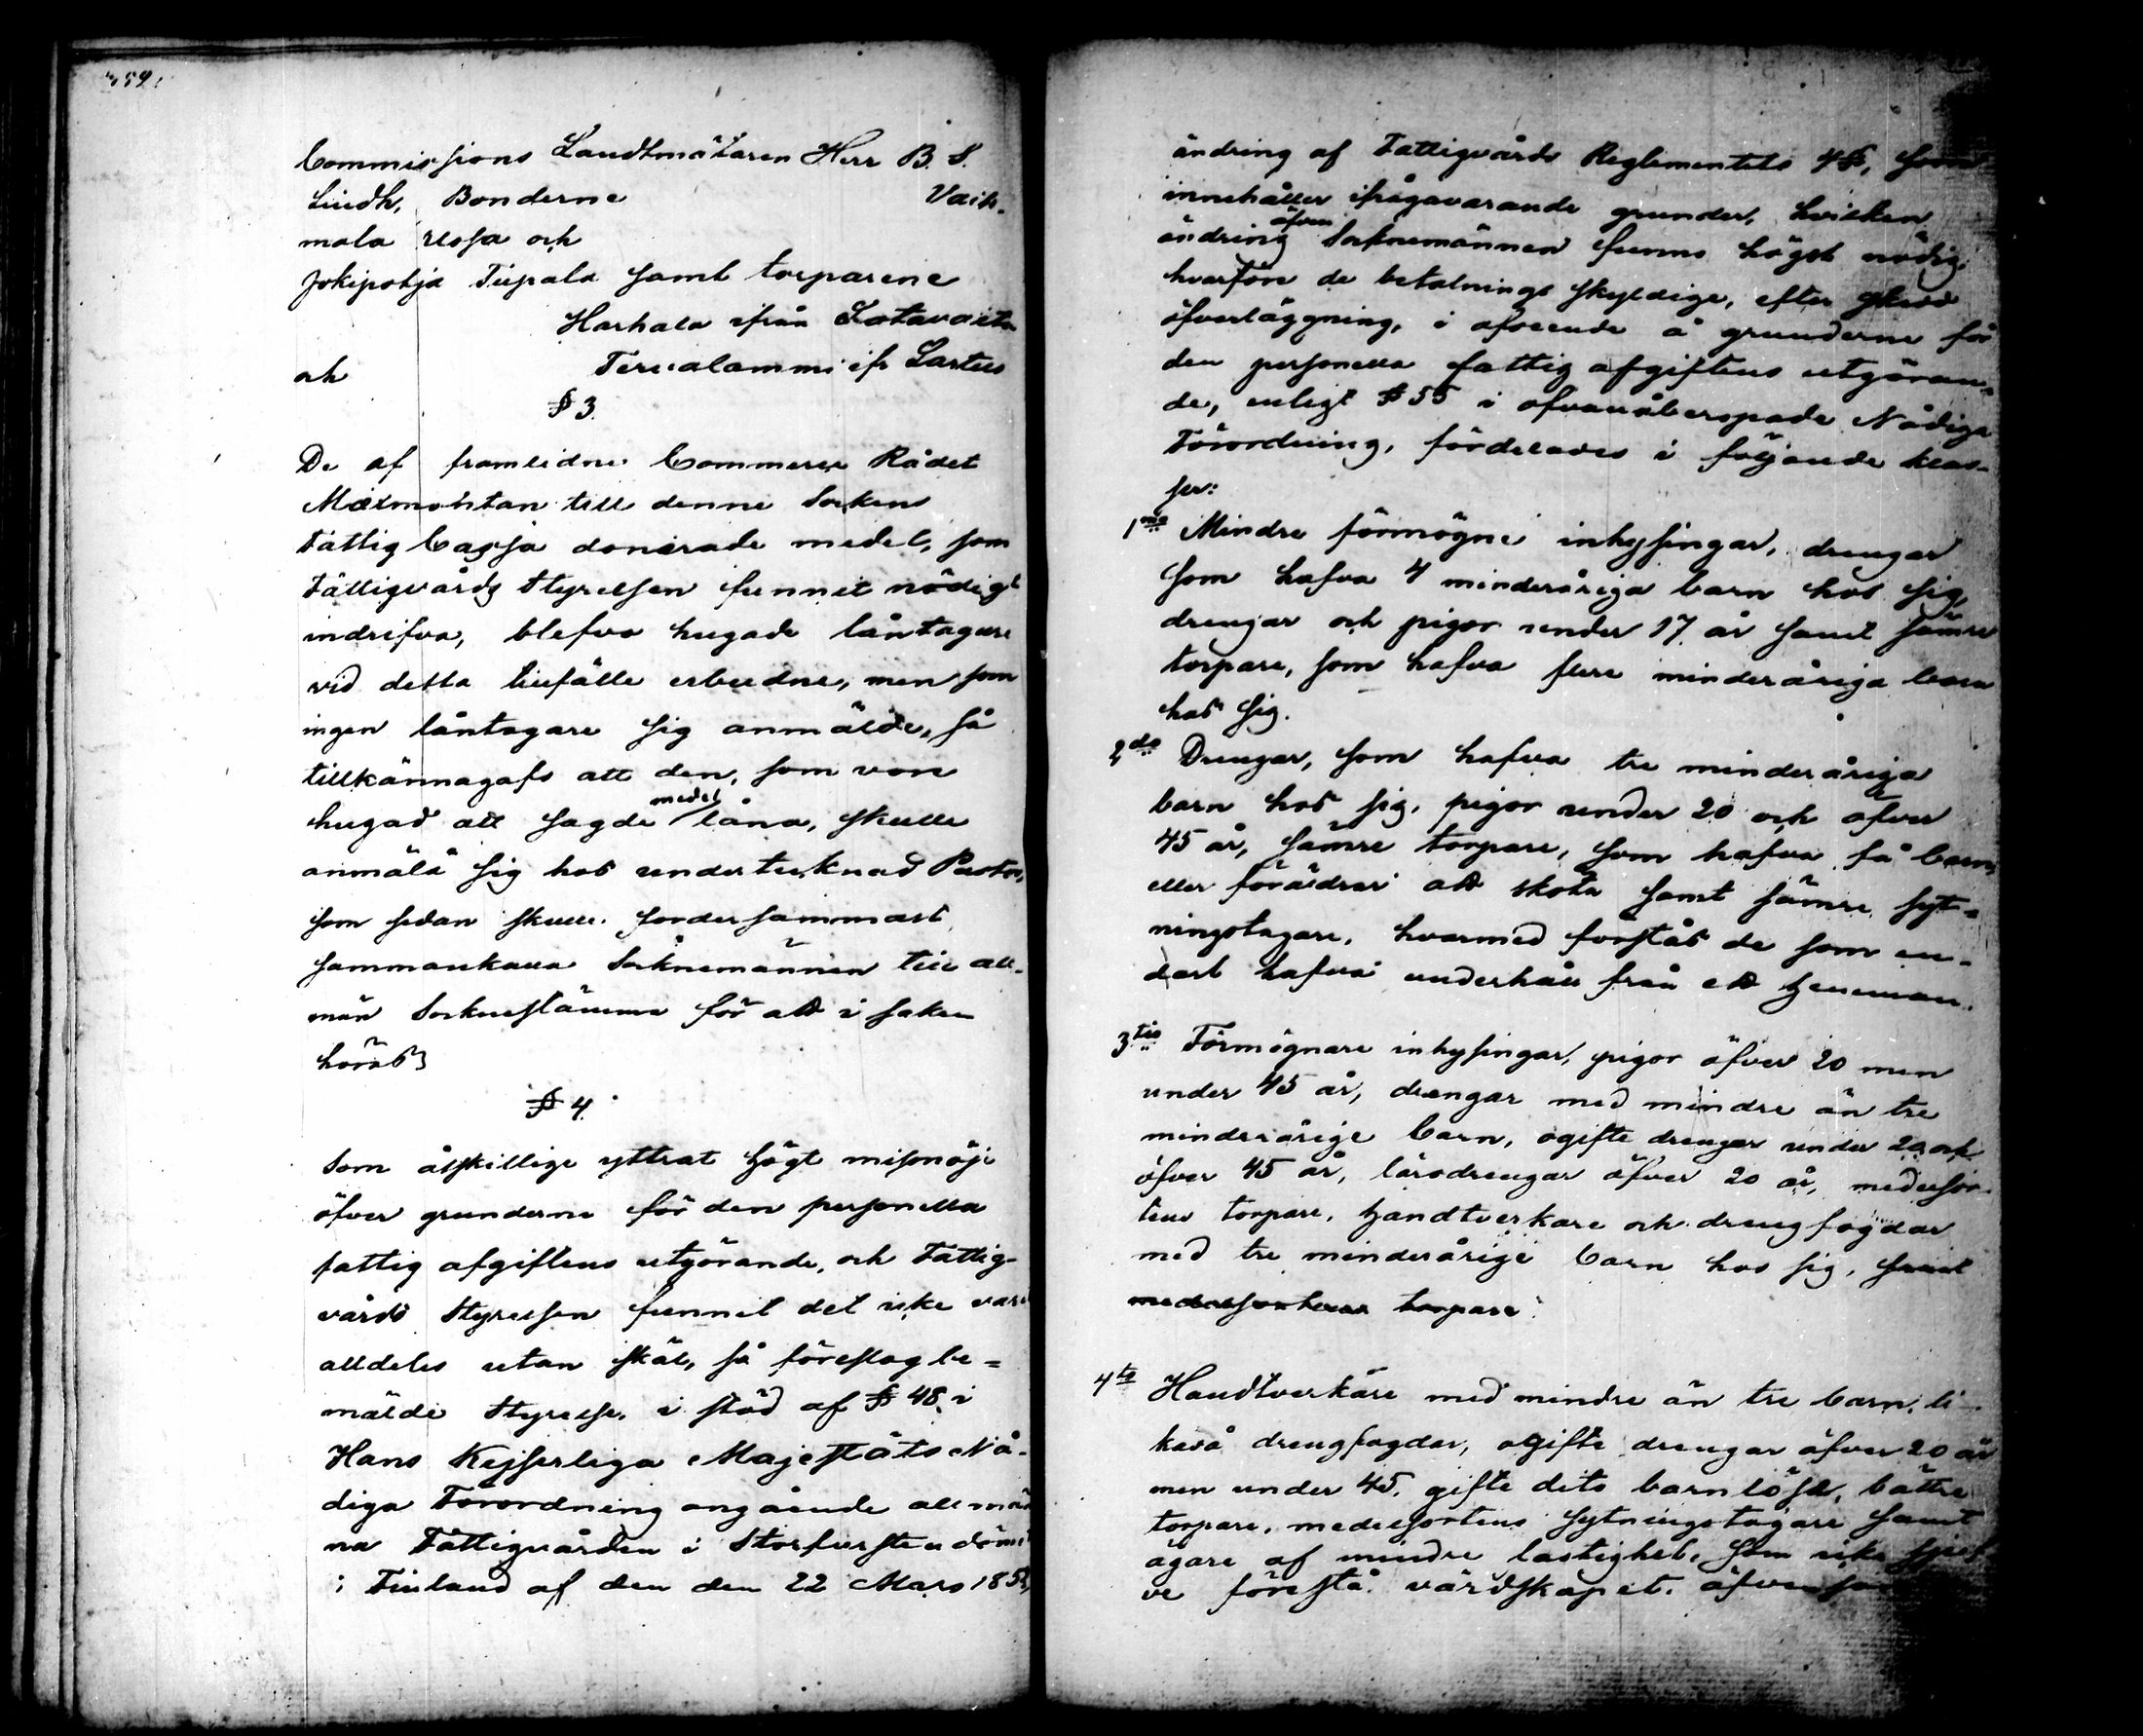 Commissions Landtmätaren Herr B. S.
Lindh, Bonderne Vaik-
mala Ussa och
Jokipohja Tiepala samt torparene
Harhala ifrån Latavaita
och Tervalammi ifr Lartus
§ 3.
De af framlidne Commerce Rådet
Malmohtan till denne Sockens
Fattig Cassa donerade medel, som
Fattigvårds Styrelsen funnit nödigt
indrifva, blefvo hugade låntagare
vid detta tillfälle erbudne, men som
ingen låntagare sig anmälde, så
tillkännagafs att den, som vore
hugad att sagde medel låna, skulle
anmäla sig hos undertecknad Pastor,
som sedan skulle fordersammast
sammankalla Socknemännen till all-
män Sockenstämma för att i saken
höras
§ 4.
Som åtskillige yttrat högt misnöje
öfver grunderne för den personella
fattig afgiftens utgörande, och Fattig-
vårds Styrelsen funnit det icke vara
alldeles utan skäl, så föreslog be=
mälde Styrelse, i stöd af § 48 i
Hans Kejserliga Majestäts Nå-
diga Förordning angående allmän
na Fattigvården i Storfurstendömet
i Finland af den den 22 Mars 1852,
ändring af Fattigvårds Reglementets 4 §, som
innehåller ifrågavarande grunder, hvilken
ändring äfven Socknemännen funno högst nödig,
hvarföre de betalnings skyldige, efter skedd
öfverläggning, i afseende å grunderne för
den personella fattig afgiftens utgöran-
de, enligt § 55 i ofvanåberopade Nådiga
Förordning, fördelades i följande klas-
ser:
1mo Mindre förmögne inhysingar, drengar
som hafva 4 minderåriga barn hos sig,
drengar och pigor under 17 år samt sämre
torpare, som hafva flere minderåriga barn
hos sig.
2do Drengar, som hafva tre minderåriga
barn hos sig, pigor under 20 och öfver
45 år, sämre torpare, som hafva få barn
eller föräldrar att sköta samt sämre syt=
ningstagare, hvarmed förstås de som en-
dast hafva underhåll från ett hemman.
3tio Förmögnare inhysingar, pigor öfver 20 men
under 45 år, drengar med mindre än tre
minderårige barn, ogifte drengar under 20 och
öfver 45 år, lärodrengar öfver 20 år, medelsor-
tens torpare, handtverkare och drengfogdar
med tre minderårige barn hos sig, samt
medelsortens torpare.
4to Handtverkare med mindre än tre barn, li-
kaså drengfogdar, ogifte drengar öfver 20 år
men under 45, gifte dito barnlöse, bättre
torpare, medelsortens sytningstagare samt
ägare af mindre lägenhet, som icke sjelf
ve förestå värdskapet, äfvensom